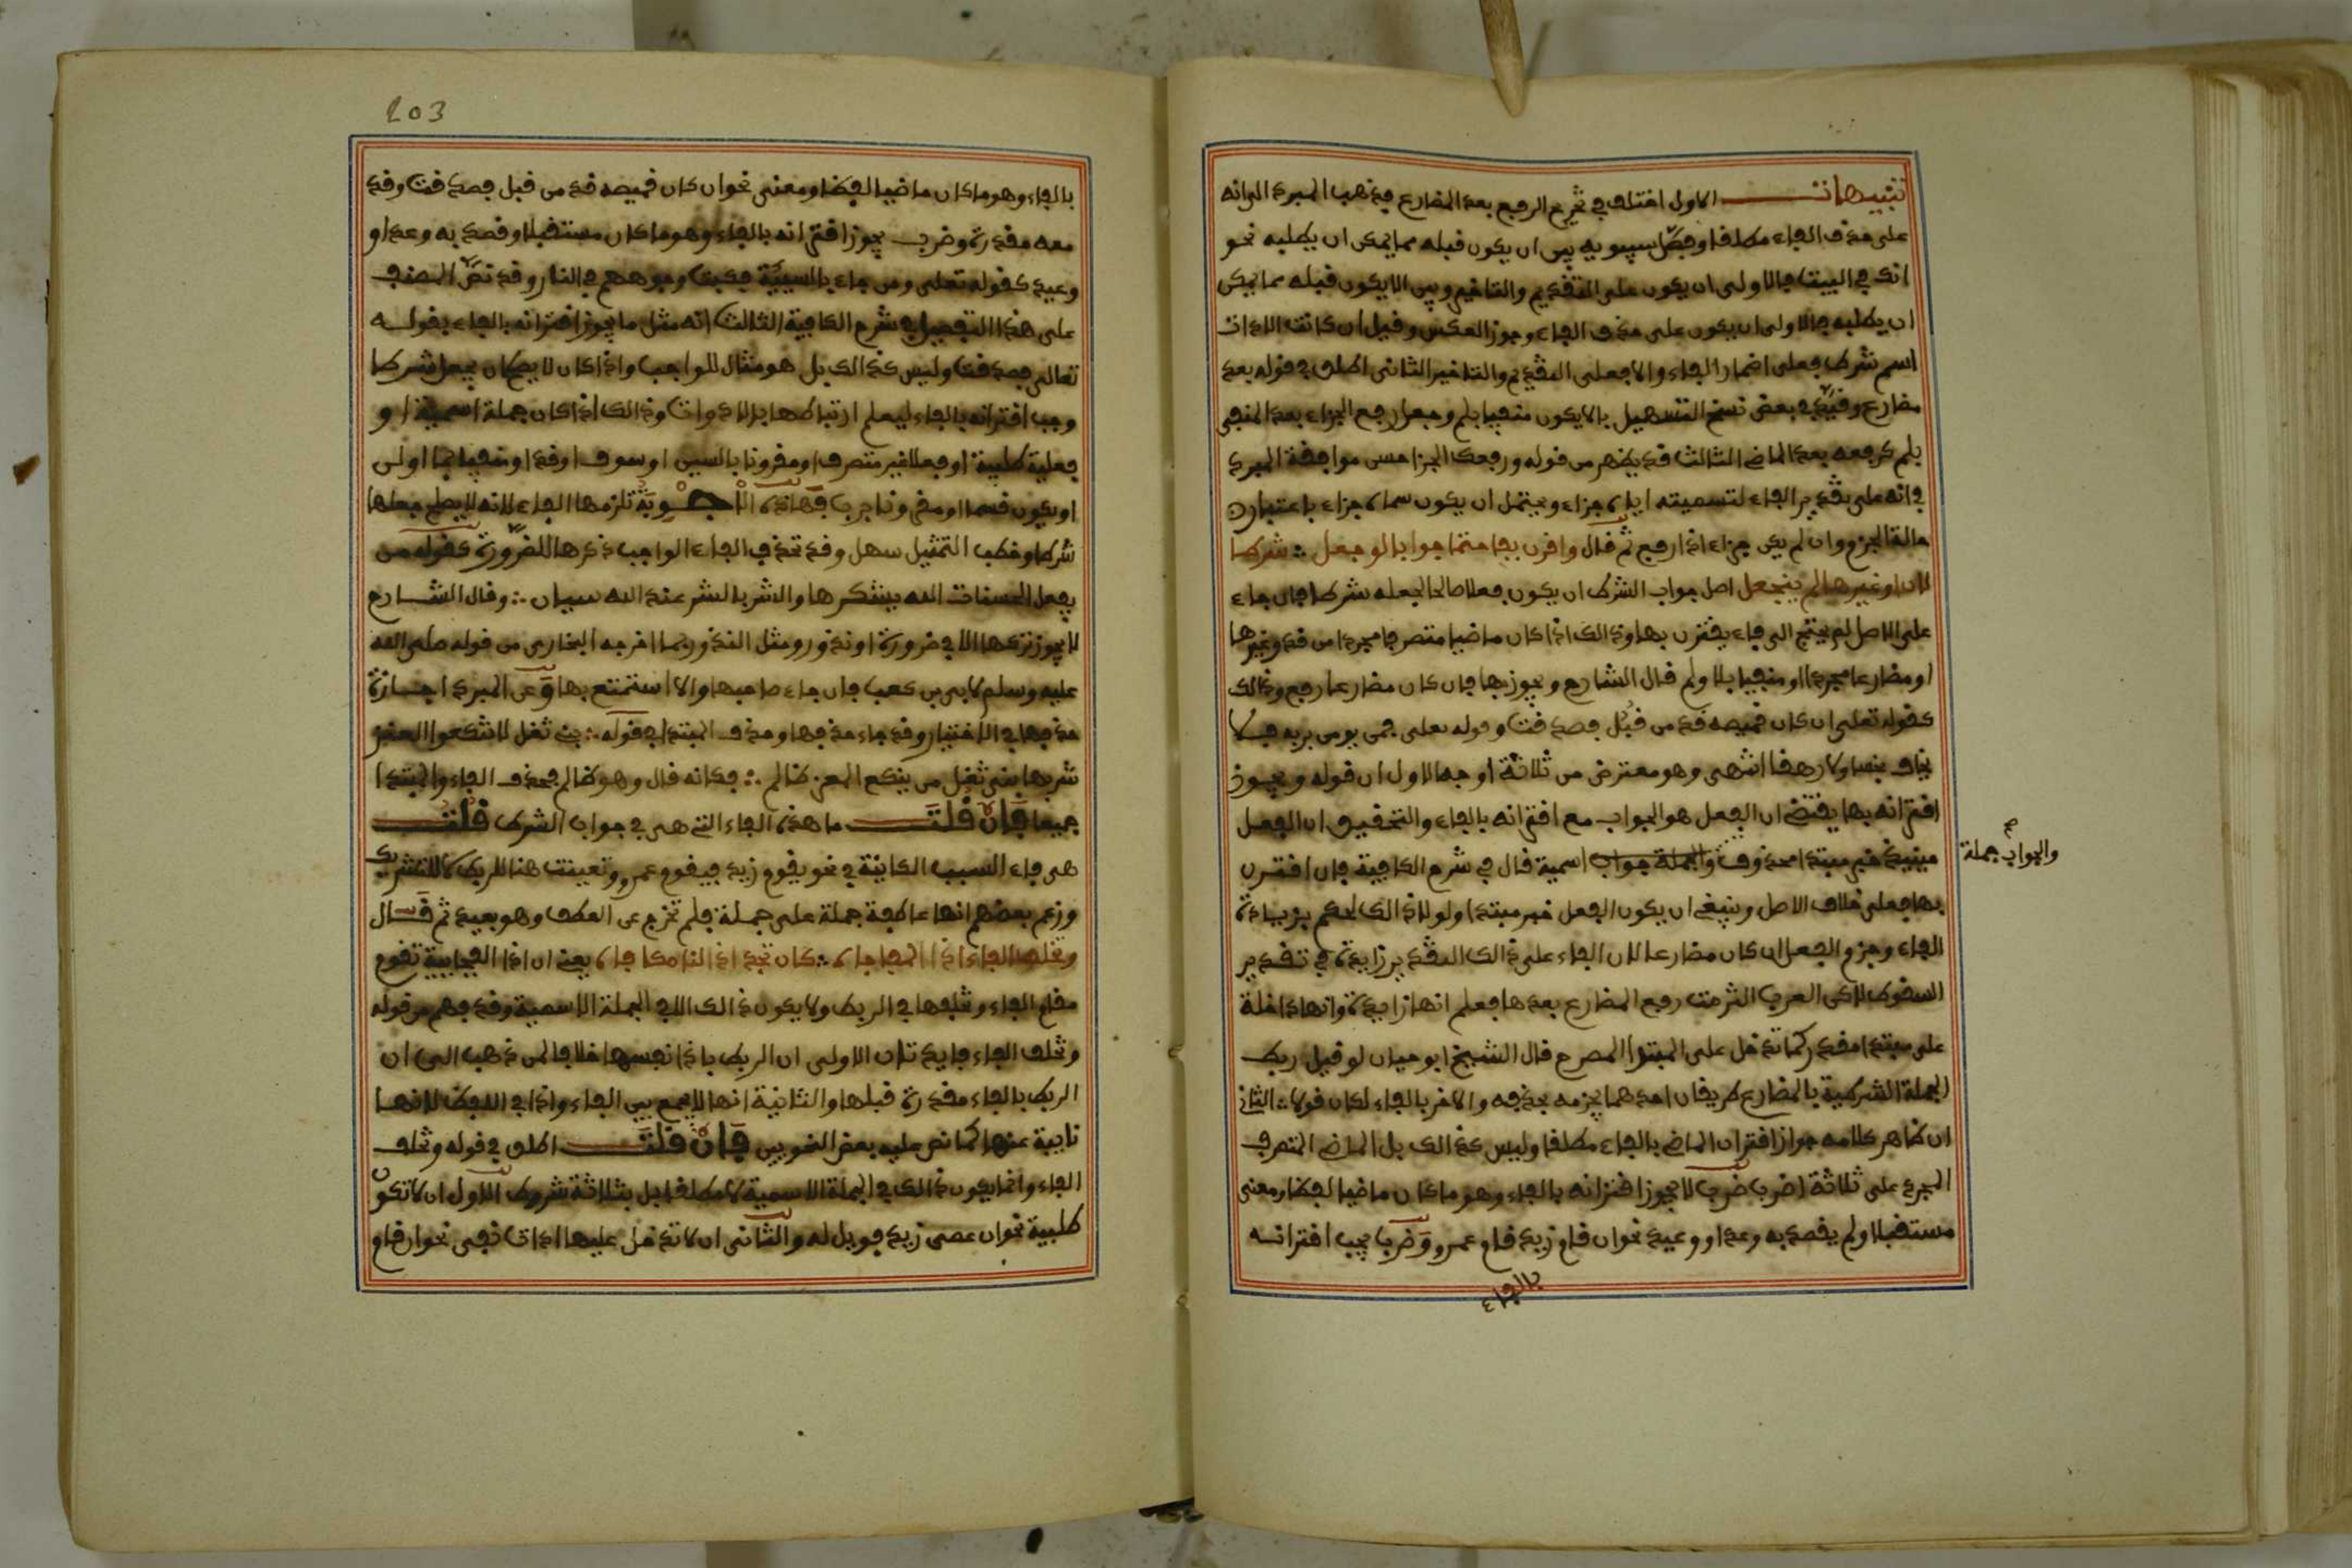 تنبيهات الاول اختلف في تخريج الرفع بعد المضارع فذهب المبرد الى انه
على حذف الفاء مطلقا وفصّل سيبويه بين ان يكون قبله مما يمكن ان يطلبه نحو
انك في البيت فالاولى ان يكون على التقديم والتاخير وبين الا يكون قبله مما يمكن
ان يطلبه فالاولى ان يكون على حذف الفاء وجوز العكس وقيل ان كانت الادات
اسم شرط فعلى اضمار الفاء والا فعلى التقديم والتاخير الثاني اطلق في قوله بعد
مضارع وقيّد في بعض نسخ التسهيل بالا يكون منفيا بلم وجعل رفع الجزاء بعد المنفي
بلم كرفعه بعد الماضي الثالث قد يظهر من قوله ورفعك الجزا حسن موافقة المبرد
في انه على تقدير الفاء لتسميته اياه جزاء ويحتمل ان يكون سماه جزاء باعتبار
حالة الجزم وان لم يكن جزاء اذا رفع ثم قال واقرن بفا حتما جوابا لو جعل ∴ شرطا
لان او غيرها لم ينجعل اصل جواب الشرط ان يكون فعلا صالحا لجعله شرطا فان جاء
على الاصل لم يحتج الى فاء يقترن بها وذالك اذا كان ماضيا متصرفا مجردا من قد وغيرها
او مضارعا مجردا او منفيا بلا ولم قال الشارح ويجوز بها فان كان مضارعا رفع وذالك
كقوله تعلى ان كان قميصه قد من قبل فصدقت وقوله تعلى فمن يومن بربه فلا
يخاف بخسا ولا رهقا انتهى وهو معترض من ثلاثة اوجه الاول ان قوله ويجوز
اقترانه بها يقتضي ان الفعل هو الجواب مع اقترانه بالفاء والتحقيق ان الفعل
حينيذ خبر مبتدا محذوف والجملة جواب اسمية قال في شرح الكافية فان اقترن
والجواب جملة صح
بها فعلى خلاف الاصل وينبغي ان يكون الفعل خبر مبتدا ولولا ذالك لحكم بزيادة
الفاء وجزم الفعل ان كان مضارعا لان الفاء على ذالك التقدير زايدة في تقدير
السقوط لاكن العرب التزمت رفع المضارع بعدها فعلم انها غير زايدة وانها داخلة
على مبتدا مقدر كما تدخل على المبتدا المصرح قال الشيخ ابو حيان لو قيل ربط
الجملة الشرطية بالمضارع طريقان احدهما بجزمه بحذفه والاخر بالفاء لكان قولا ∴ الثاني
ان ظاهر كلامه جواز اقتران الماضي بالفاء مطلقا وليس كذالك بل الماضي المتصرف
المجرد على ثلاثة اضرب ضرب لا يجوز اقترانه بالفاء وهو ما كان ماضيا لفظا ومعنى
مستقبلا ولم يقصد به وعدا ووعيد نحو ان قام زيد قام عمرو وضرب يجب اقترانه
بالفاء
203
بالفاء وهو ما كان ماضيا لفظا ومعنى نحو ان كان قميصه قد من قبل فصدقت وقد
معه مقدرة وضرب يجوز اقترانه بالفاء وهو ما كان مستقبلا وقصد به وعدا او
وعيد كقوله تعلى ومن جاء بالسيّئة فكبت وجوههم في النار وقد نصّ المصنف
على هذا التفصيل في شرح الكافية الثالث انه مثل ما يجوز اقترانه بالفاء بقوله
تعالى فصدقت وليس كذالك بل هو مثال للواجب واذا كان لا يصلح ان يجعل شرطا
وجب اقترانه بالفاء ليعلم ارتباطها بالادوات وذالك اذا كان جملة اسمية او
فعلية طلبية او فعلا غير متصرف او مقرونا بالسين او سوف او قد او منفيا بما او لن
او يكون قسما او مقرونا برب فهاذه الاجوبة تلزمها الفاء لانه لا يصلح جعلها
شرطا وخطب التمثيل سهل وقد تحذف الفاء الواجب ذكرها للضرورة كقوله من
يفعل الحسنات الله يشكرها والشر بالشر عند الله سيان ∴ وقال الشارح
لا يجوز تركها الا في ضرورة او ندور ومثل الندور بما اخرجه البخاري من قوله صلى الله
عليه وسلم لابي بن كعب فان جاء صاحبها والا استمتع بها وعن المبرد اجازة
حذفها في الاختيار وقد جاء حذفها وحذف المبتدا في قوله ∴ بني ثعل لا تنكعوا العنز
شربها بني ثعل من ينكع العنز ظالم ∴ فكانه قال وهو ظالم فحذف الفاء والمبتدا
جميعا فان قلت ما هذه الفاء التي هي في جواب الشرط قلت
هي فاء السبب الكاينة في نحو يقوم زيد فيقوم عمرو وتعينت هنا للربط لا للتشريك
وزعم بعضهم انها عاطفة جملة على جملة فلم تخرج عن العطف وهو بعيد ثم قال
وتخلف الفاء اذا المفاجاه ∴ كان تجد اذا لنا مكافاه يعني ان اذا الفجايية تقوم
مقام الفاء وتخلفها في الربط ولا يكون ذالك الا في الجملة الاسمية وقد فهم من قوله
وتخلف الفاء فايدتان الاولى ان الربط باذا نفسها خلافا لمن ذهب الى ان
الربط بالفاء مقدرة قبلها والثانية انها لا يجمع بين الفاء واذا في اللفظ لانها
نايبة عنها كما نص عليه بعض النحويين فان قلت اطلق في قوله وتخلف
الفاء وانما يكون ذالك في الجملة الاسمية لا مطلقا بل بثلاثة شروط الاول ان لا تكون
طلبية نحو ان عصى زيد فويل له والثاني ان لا تدخل عليها ادات نفي نحو ان قام